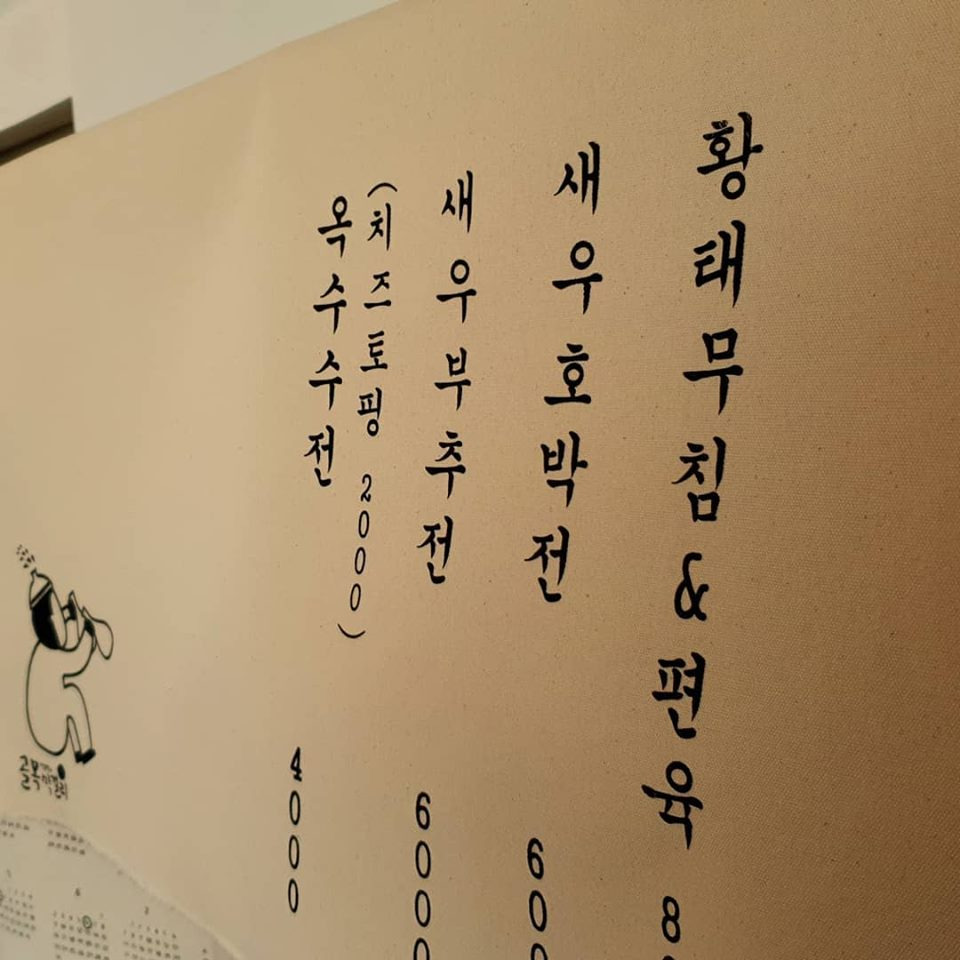 황태무침&편육 8
새우호박전 60
새우부추전 6000
옥수수전 4000
(치즈토핑 2000)
골목막걸리